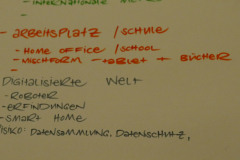 - INTERNATIONALE
- ARBEITSPLATZ / SCHULE
- HOME OFFICE / SCHOOL
- MISCHFORM → TABLET + BÜCHER
-
DIGITALISIERTE WELT
- ROBOTER
- ERFINDUNGEN
- SMART HOME
RISIKO: DATENSAMMLUNG, DATENSCHUTZ,